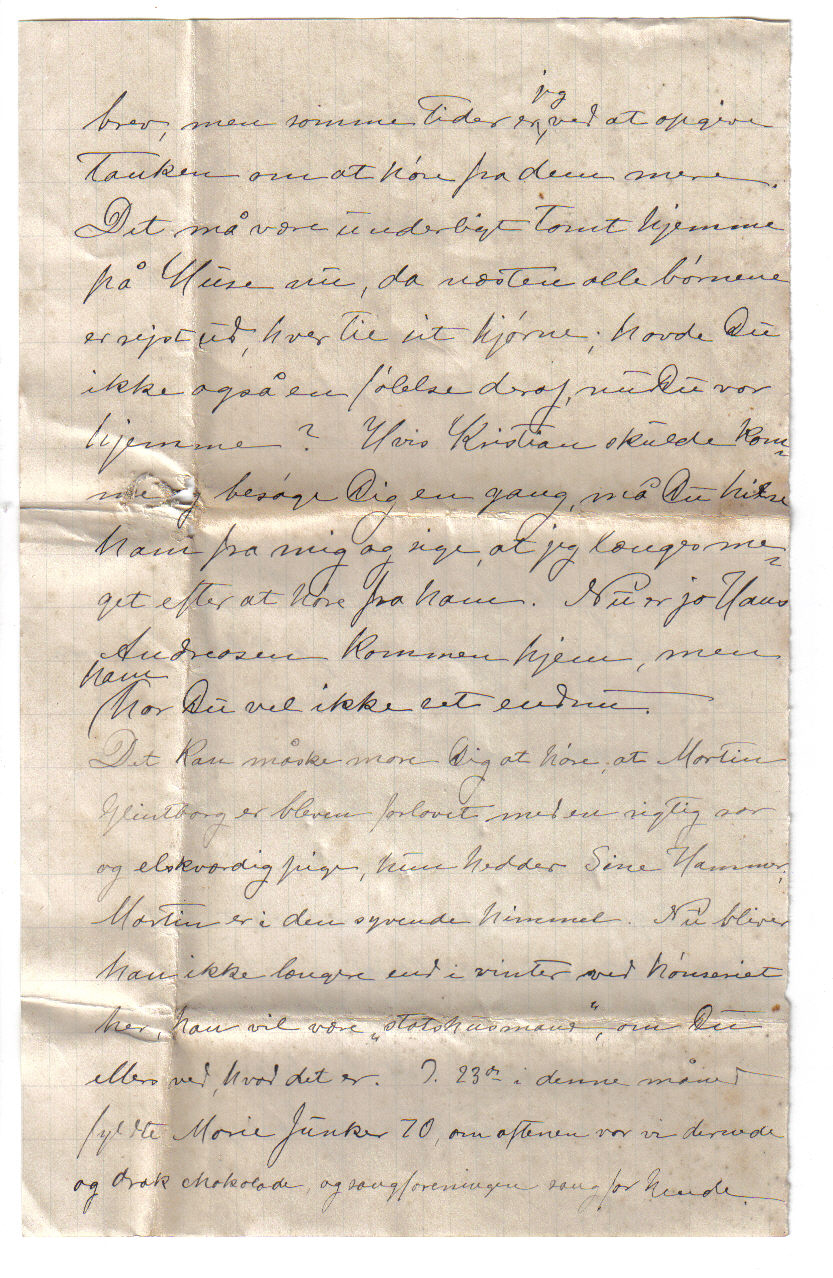 brev, men somme tider er jeg ved at opgive
Tanken om at höre fra dem mere.
Det må være underligt tomt hjemme
på Huse nu, da næsten alle börnene
er rejst ud, hver til sit hjörne; havde Du
ikke også en fölelse deraf, nu Du var
hjemme? Hvis Kristian skulde kom-
me og besöge Dig en gang, må Du hilse
ham fra mig og sige, at jeg længes me-
get efter at höre fra ham. Nu er jo Hans
Andreasen kommen hjem, men
ham har Du vel ikke set endnu.
Det kan måske more Dig at höre, at Martin
Glintborg er bleven forlovet med en rigtig rar
og elskværdig pige, hun hedder Sine Hammer,
Martin er i den syvende himmel. Nu bliver
han ikke længere end i vinter ved hönseriet
her, han vil være "statshusmand", om Du
ellers ved, hvad det er. D. 23de i denne måned
fyldte Marie Junker 70, om aftenen var vi dernede
og drak chokolade, og sangforeningen sang for hende.